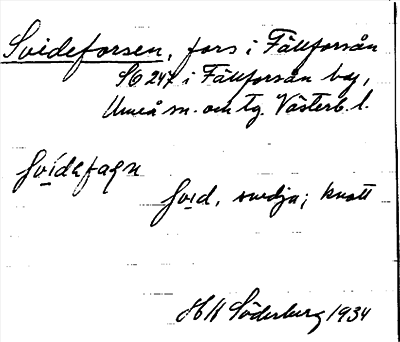 Svideforsen, fors i Fällforsån
SO 247 i Fällforsån by,
Umeå sn. och tg. Västerb. l.
svidefaꞩn
svid, svedja; knott
H H Söderberg 1934